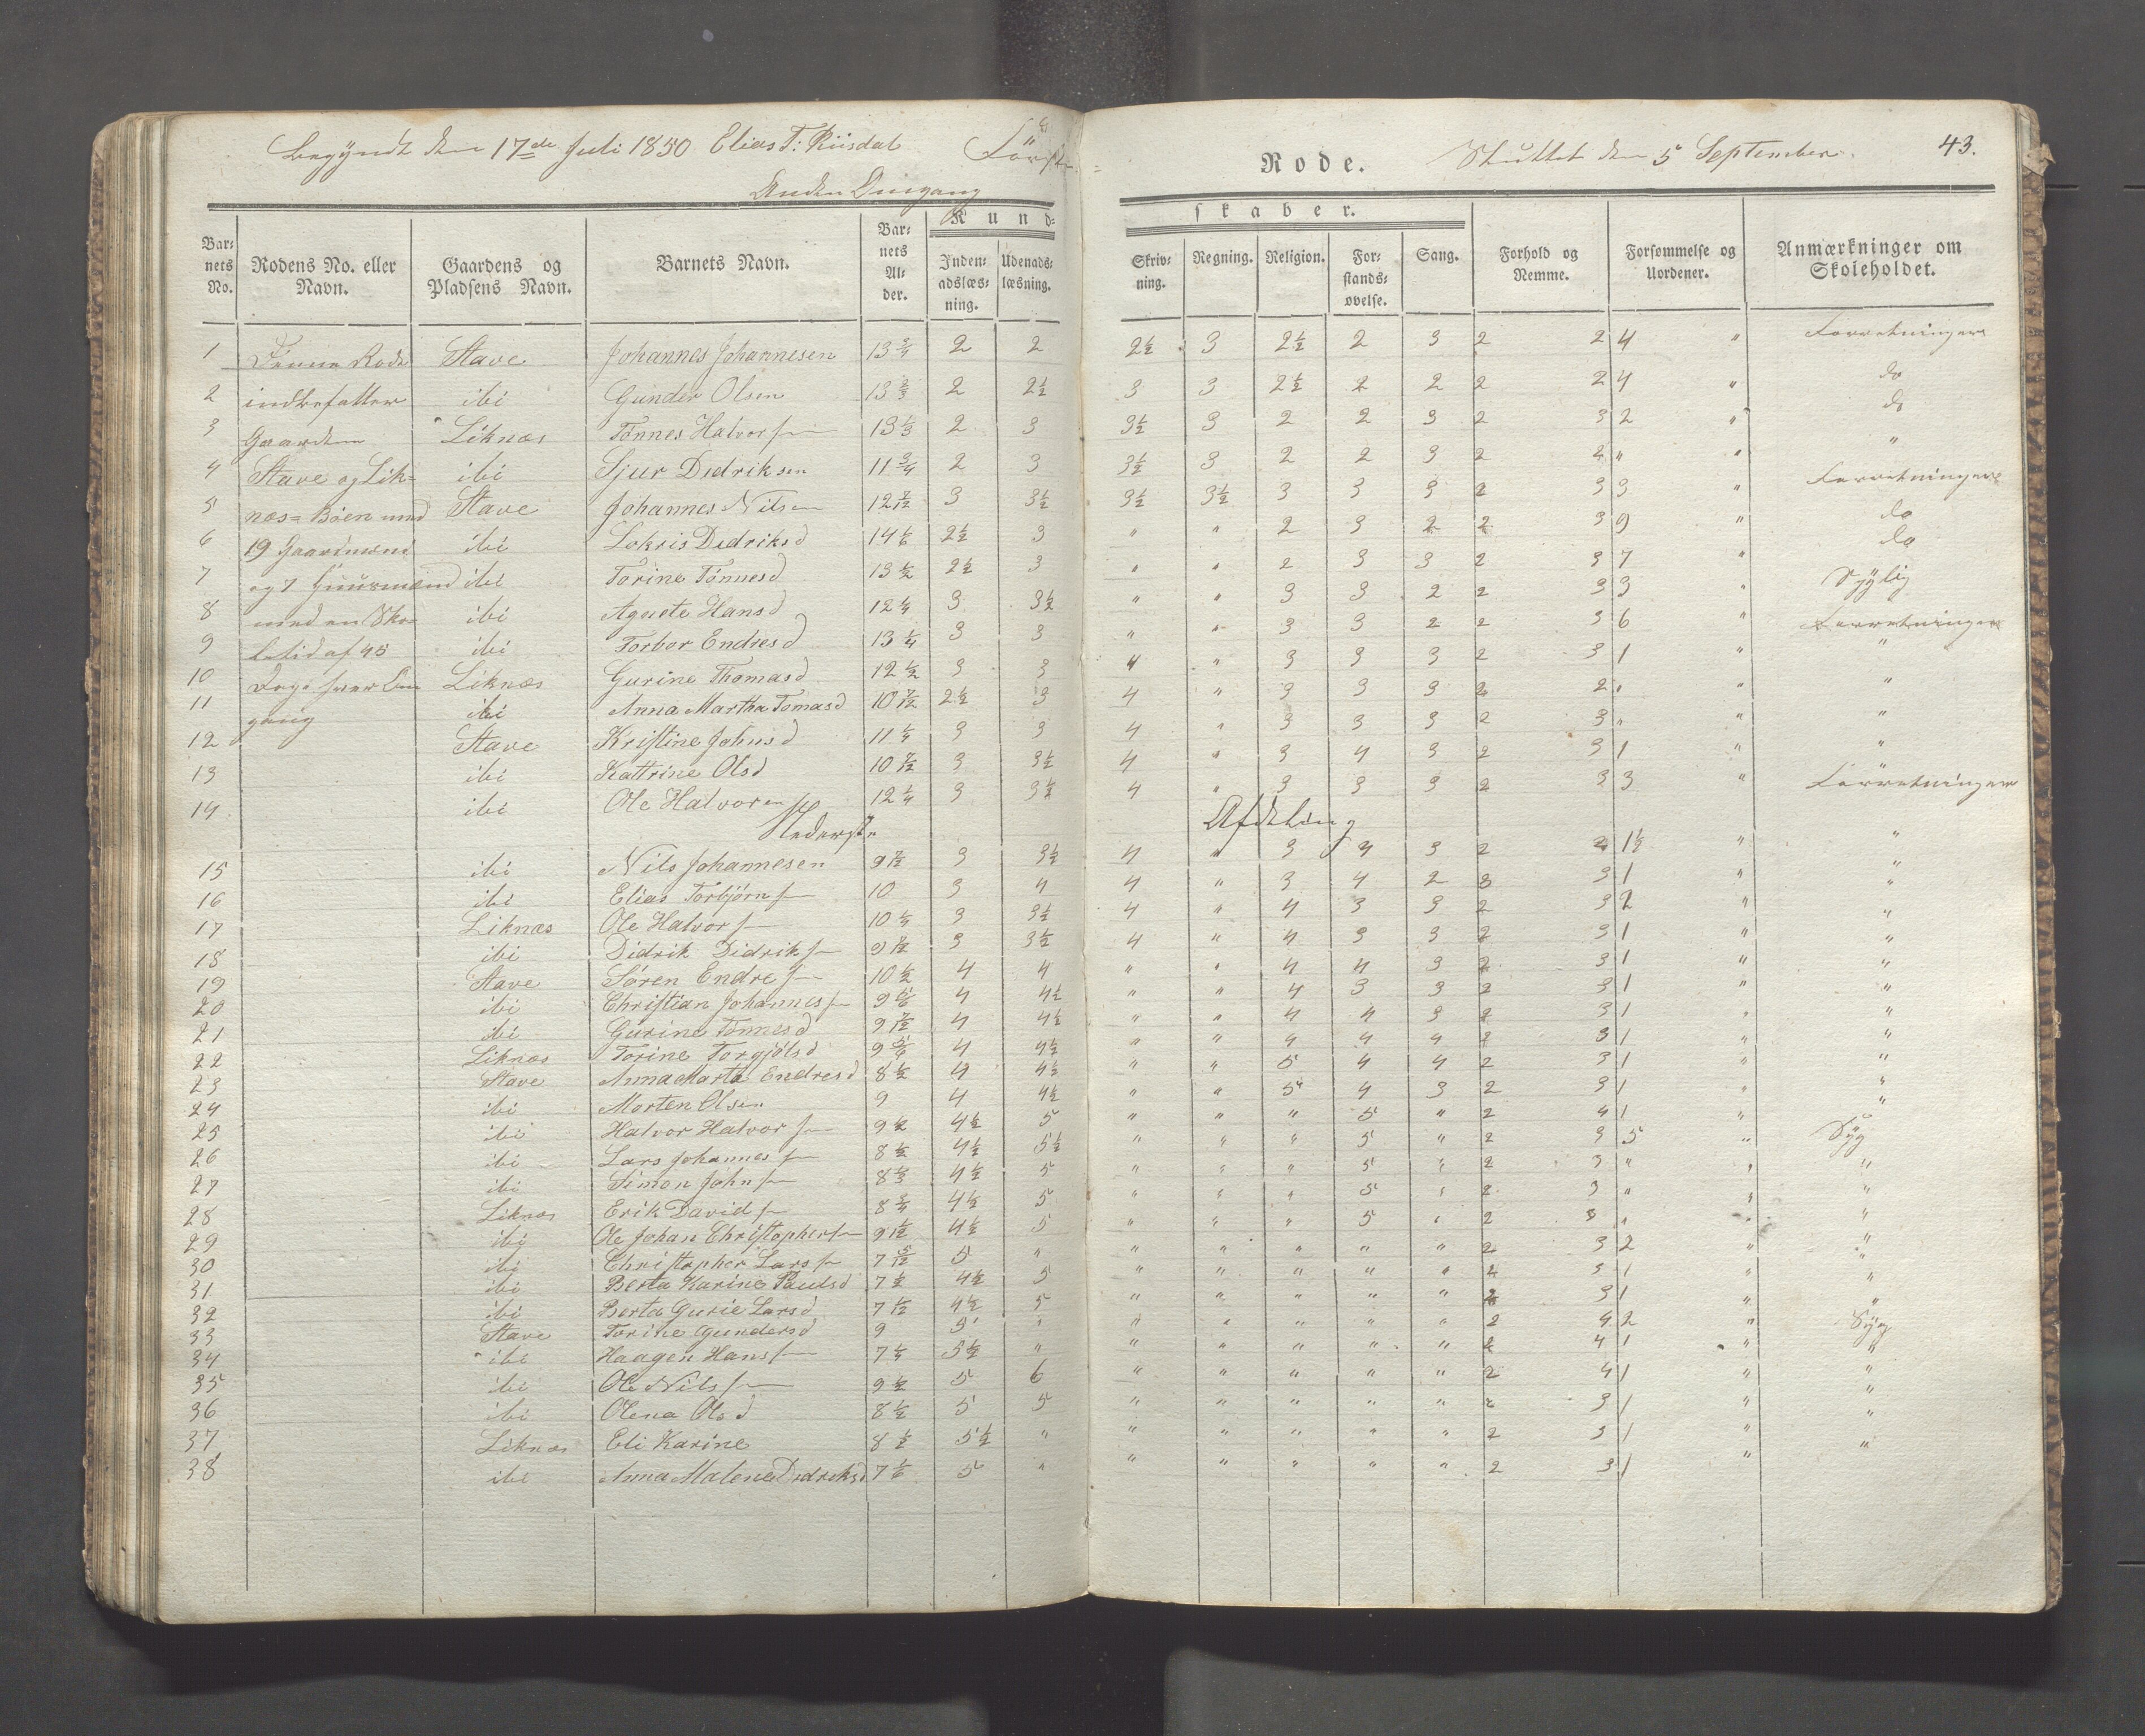 Begyndt den 17de Juli 1850 Elias T: Riisdal Förste
Rode. Sluttet den 5 September. 43.
Anden Omgang
Kund- skaber.
Bar- nets No. Rodens No. eller Navn. Gaardens og Pladsens Navn. Barnets Navn. Bar- nets Al- der. Inden- adslæs- ning. Udenads- læsning. Skriv- ning. Regning. Religion. For- stands- øvelse. Sang. Forhold og Nemme. Forsømmelse og Uordener. Anmærkninger om Skoleholdet.
1 Denne Rode Stave Johannes Johannesen 13 3/4 2 2 2½ 3 2½ 2 3 2 2 4 " Forretninger
2 indbefatter ibi Gunder Olsen 13 2/3 2 2½ 3 3 2½ 2 2 2 2 4 " do
3 Gaardene Liknæs Tönnes Halvorsen 13 1/3 2 3 3½ 3 2 2 3 2 3 2 " do
4 Stave og Lik- ibi Sjur Didriksen 11 3/4 2 3 3½ 3 2 2 3 2 2 " " "
5 næs=Böen med Stave Johannes Nilsen 12 7/12 3 3½ 3½ 3½ 3 3 3 2 3 3 " Forretninger
6 19 Gaardmænd ibi Lokris Didriksd 14 1/6 2½ 3 " " 2 3 2 2 3 9 " do
7 og 7 Huusmænd ibi Torine Tönnesd 13 1/2 2½ 3 " " 2 3 3 2 3 7 " do
8 med en Sko- ibi Agnete Hansd 12 1/4 3 3½ " " 3 3 2 2 3 3 " Sÿglig
9 letid af 45 ibi Torbor Endresd 13 1/4 3 3 " " 3 3 2 2 3 6 " Forretninger
10 Dage hver Om Liknæs Gurine Thomasd 12 1/2 3 3 4 " 3 3 3 2 3 1 " "
11 gang ibi Anna Martha Tomasd 10 7/12 2½ 3 4 " 3 3 3 2 2 " " "
12 Stave Kristine Johnsd 11 1/4 3 3 4 " 3 3 3 2 3 " " "
13 ibi Kattrine Olsd 10 7/12 3 3½ 4 " 3 4 3 2 3 1 " "
14 ibi Ole Halvorsen 12 1/4 3 3½ 4 " 3 3 3 2 3 3 " Forretninger
Nederste Afdeling
15 ibi Nils Johannesen 9 3 3½ 4 " 3 4 3 2 2 1½ " "
16 ibi Elias Torbjörnsen 10 3 4 4 " 3 4 2 3 3 1 " "
17 Liknæs Ole Halvorsen 10 1/4 3 3½ 4 " 4 3 3 2 3 2 " "
18 ibi Didrik Didriksen 9 7/12 3 3½ 4 " 4 3 3 2 3 1 " "
19 Stave Sören Endresen 10 1/2 4 4 " " 4 4 3 2 3 1 " "
20 ibi Christian Johannessen 9 5/6 4 4½ " " 4 3 3 2 3 1 " "
21 ibi Gurine Tönnesd 9 7/12 4 4½ " " 4 4 3 2 3 1 " "
22 Liknæs Torine Torgjölsd 9 3/4 4 4½ " " 4 4 4 2 3 1 " "
23 Stave Anna Marta Endresd 8 1/2 4 4½ " " 5 4 4 2 3 1 " "
24 ibi Morten Olsen 9 4 4½ " " 5 4 3 2 3 1 " "
25 ibi Halvor Halvorsen 9 1/2 4½ 5 " " " 5 " 2 4 1 " "
26 ibi Lars Johannessen 8 1/2 4½ 5½ " " " 5 " 2 3 5 " Sÿg
27 ibi Simon Johnsen 8 1/3 4½ 5 " " " 5 " 2 3 " " "
28 Liknæs Erik Davidsen 8 3/4 4½ 5 " " " 5 " 2 3 " " "
29 ibi Ole Johan Christophersen 9 1/2 4½ 5 " " " 5 " 2 3 " " "
30 ibi Christopher Larssen 7 5/12 5 " " " " " " 2 3 2 " "
31 ibi Berta Karine Paulsd 7 1/2 4½ 5 " " " " " 2 3 1 " "
32 ibi Berta Gurie Larsd 7 1/12 4½ 5 " " " " " 2 3 1 " "
33 Stave Torine Gundersd 9 5 " " " " " " 2 4 2 " Sÿg
34 ibi Haagen Hanssen 7 1/4 5½ " " " " " " 2 4 1 " "
35 ibi Ole Nilssen 9 1/2 5 6 " " " " " 2 4 1 " "
36 ibi Olena Olsd 8 1/2 5 5 " " " " " 2 3 1 " "
37 Liknæs Eli Karine 8 1/2 5½ " " " " " " 2 3 1 " "
38 ibi Anna Malene Didriksd 7 1/6 5 " " " " " " 2 3 1 " "